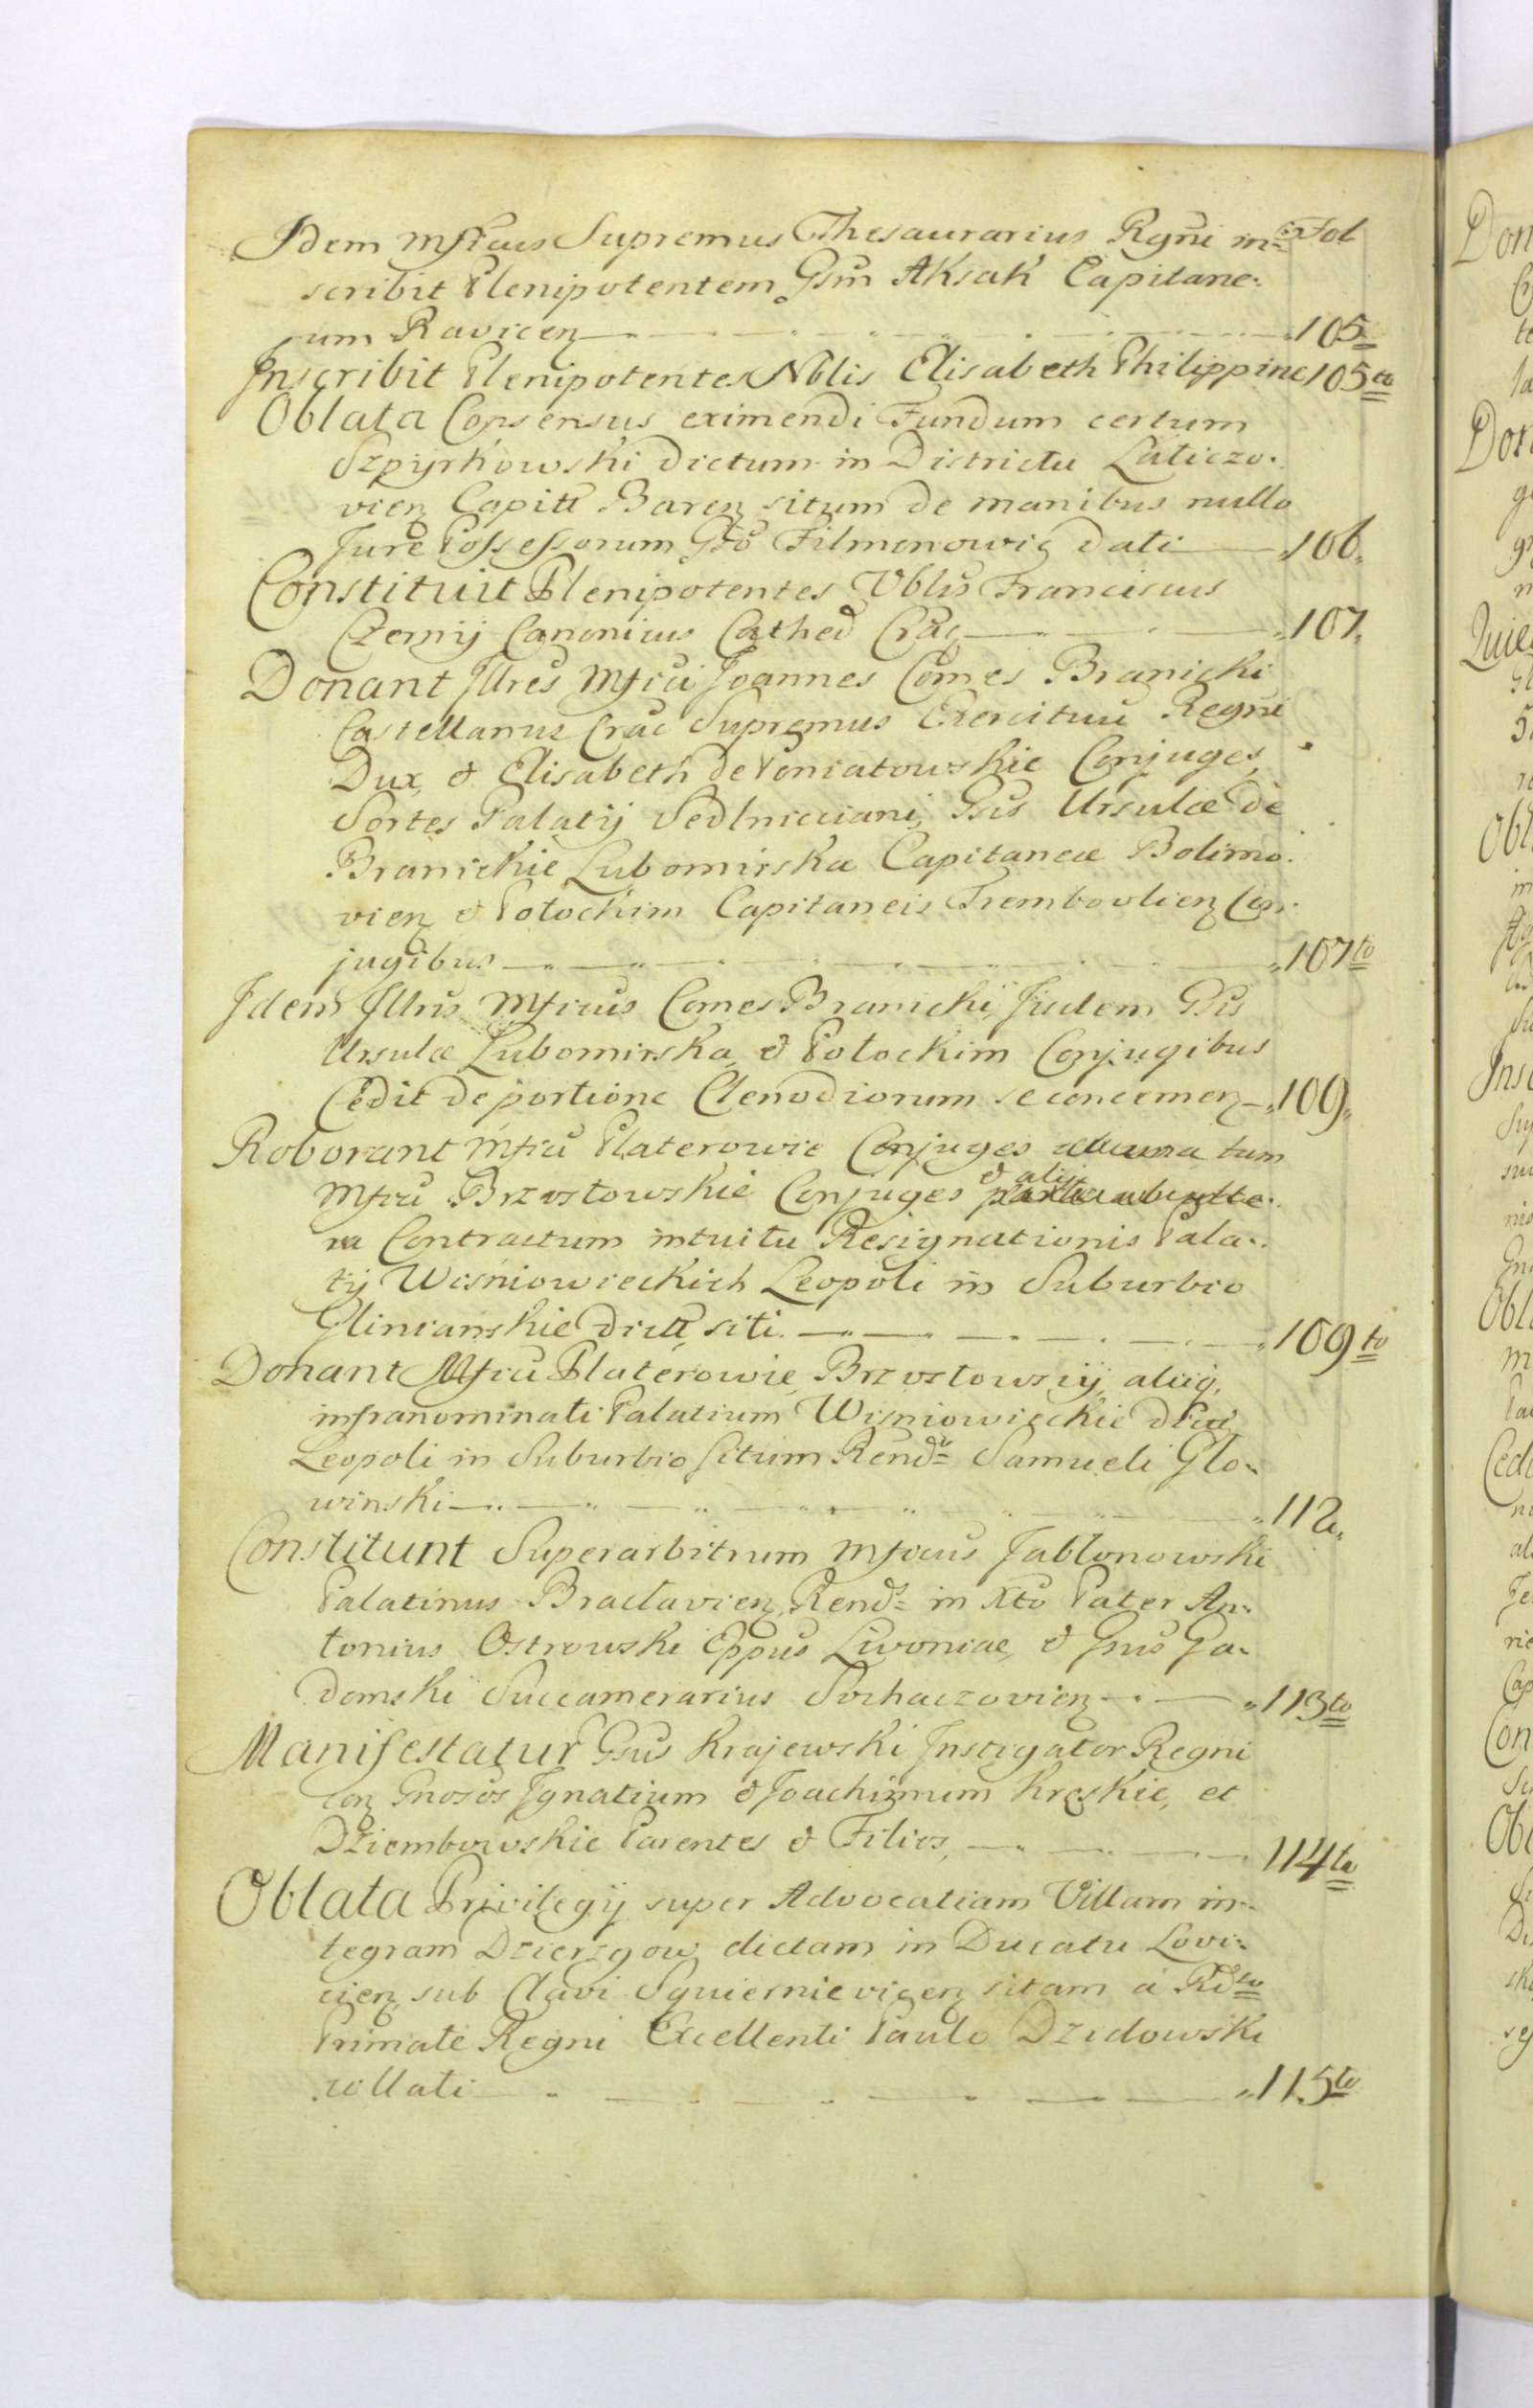 Idem Mficus Supremus Thesaurarius Regni in= Fol
scribit Plenipotentem Gsm Aksak Capitane:
um Ravicen 105.
Inscribit Plenipotentes Nblis Elisabeth Philippine 105to
Oblata Consensus eximendi Fundum certum
Szpyrkowski dictum in Districtu Laticzo.
vien Capittu Baren situm de manibus nullo
Jure Possessorum Gso Filmonowicz dati 106.
Constituit Plenipotentes Vblis Franciscus
Czerny Canonicus Cathed Crac 107.
Donant Illres Mfici Joannes Comes Branicki
Castellanus Crac Supremus Exercituu Regni
Dux, & Elisabeth de Poniatowskie Conjuges,
Sortes Palatij Sedlnicciani, Gsis Ursulæ de
Branickie Lubomirska Capitaneæ Bolimo.
vien & Potockim Capitaneis Trembovlien Con.
jugibus 107to
Idem Illrus Mficus Comes Branicki, Iisdem Gsis
Ursulæ Lubomirska, & Potockim Conjugibus
Cedit de portione Clenodiorum se concernen 109.
Roborant Mfici Platerowie Conjuges tum
Mfici Brzostowskie Conjuges & alij
Contractum intuitu Resignationis Pala.
tij Wisniowieckich Leopoli in Suburbio
Glinianskie dictt siti. 109to
Donant Mfici Platerowie, Brzostowscÿ, aliiq,
infranominati Palatium Wisniowieckie dict
Leopoli in Suburbio situm Rendo Samueli Glo=
winski 112.
Constitunt Superarbitrum Mficus Jablonowski
Palatinus Braclavien, Rends in Xto Pater An.
tonius Ostrowski Eppus Livoniae, & Gnus Ga=
domski Succamerarius Sochaczovien 113to
Manifestatur Gsus Krajewski Instigator Regni
con Gnosos Ignatium & Joachimum Kręskie, et
Dziembowskie Parentes & Filios, 114to
Oblata Privilegij super Advocatiam Villam in=
tegram Dzierzgow dictam in Ducatu Lovi=
cien, sub Clavi Squiernievicen sitam a Rdsto
Primate Regni Excellenti Paulo Dzidowski
collati 115to